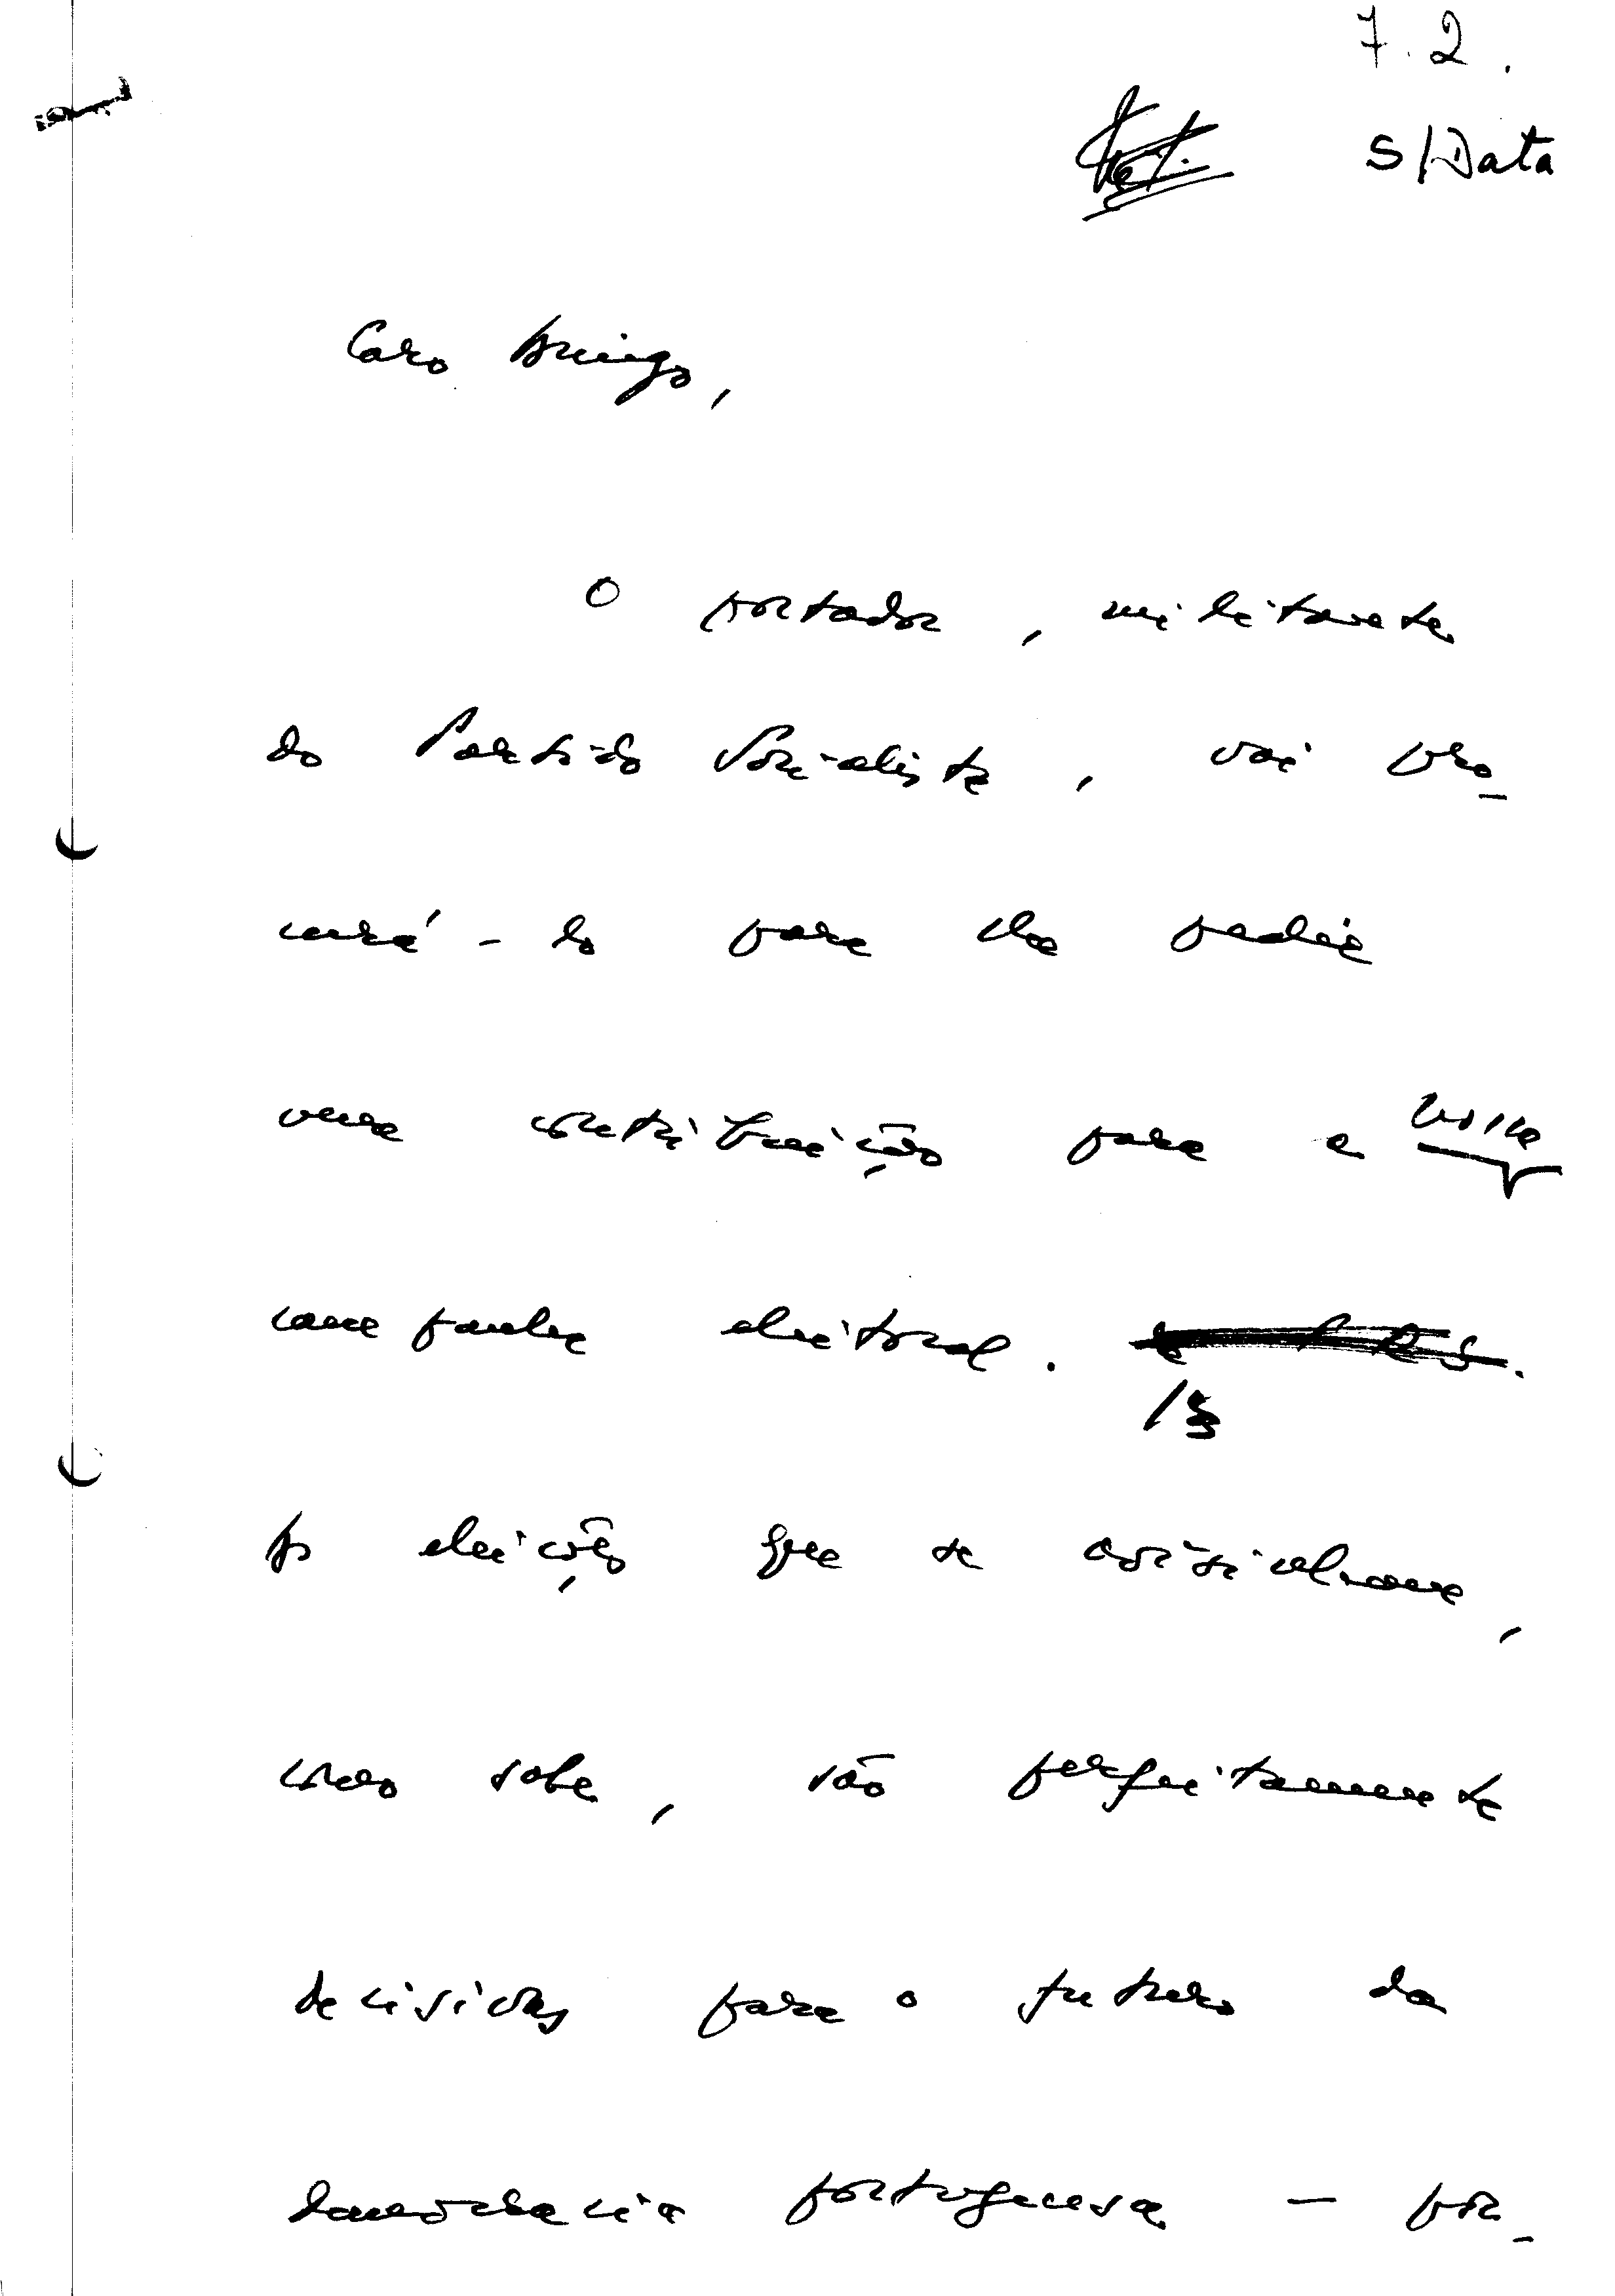 7.2.
S/Data
Caro Amigo,
O portador, militante
do Partido Socialista, vai pro-
curá-lo para lhe pedir
uma contribuição para a nossa
campanha eleitoral.
As eleições que se aproximam,
como sabe, são perfeitamente
decisivas para o futuro da
democracia portuguesa - por-